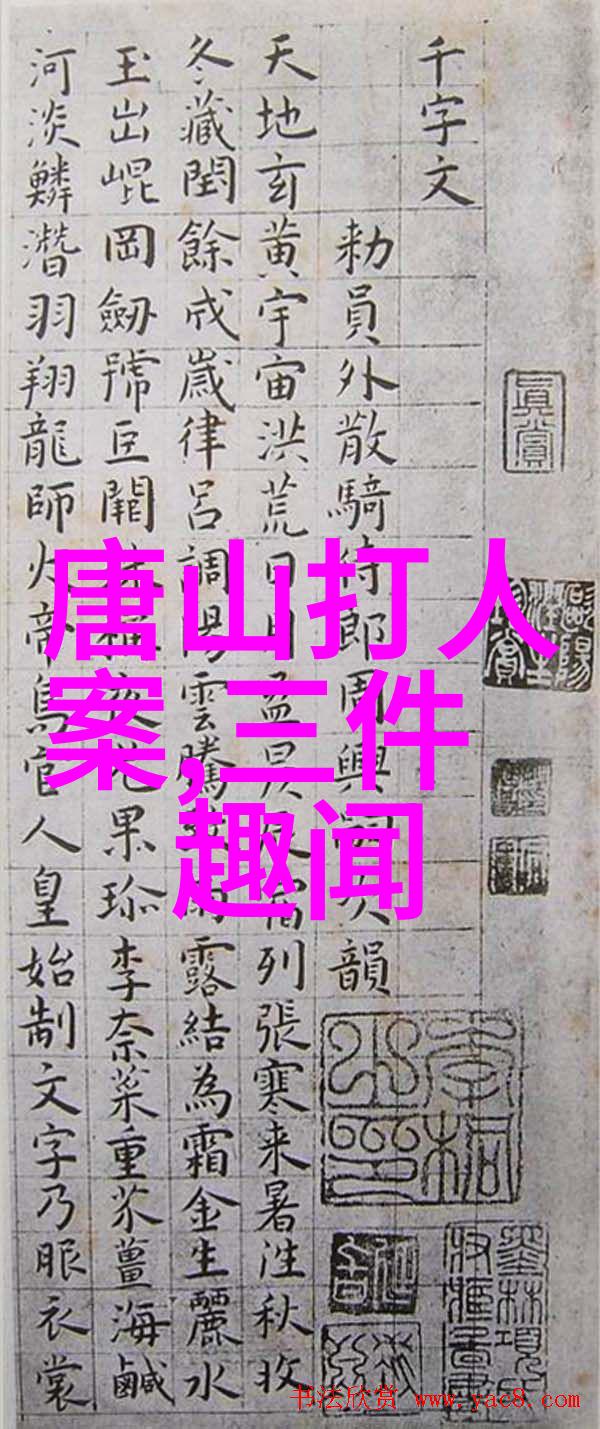 千字文
勑員外散騎侍郎周興嗣次韻
天地玄黄宇宙洪荒日月盈昃辰宿列張寒来暑往秋收
冬藏閏餘成歲律呂調陽雲騰致雨露結為霜金生麗水
玉出崐岡劒號巨闕珠稱夜光果珎李柰菜重芥薑海鹹
河淡鱗潛羽翔龍師火帝鳥官人皇始制文字乃服衣裳
真賞
唐山打人
案,三件
趣闻
书法欣赏 www.yac8.com